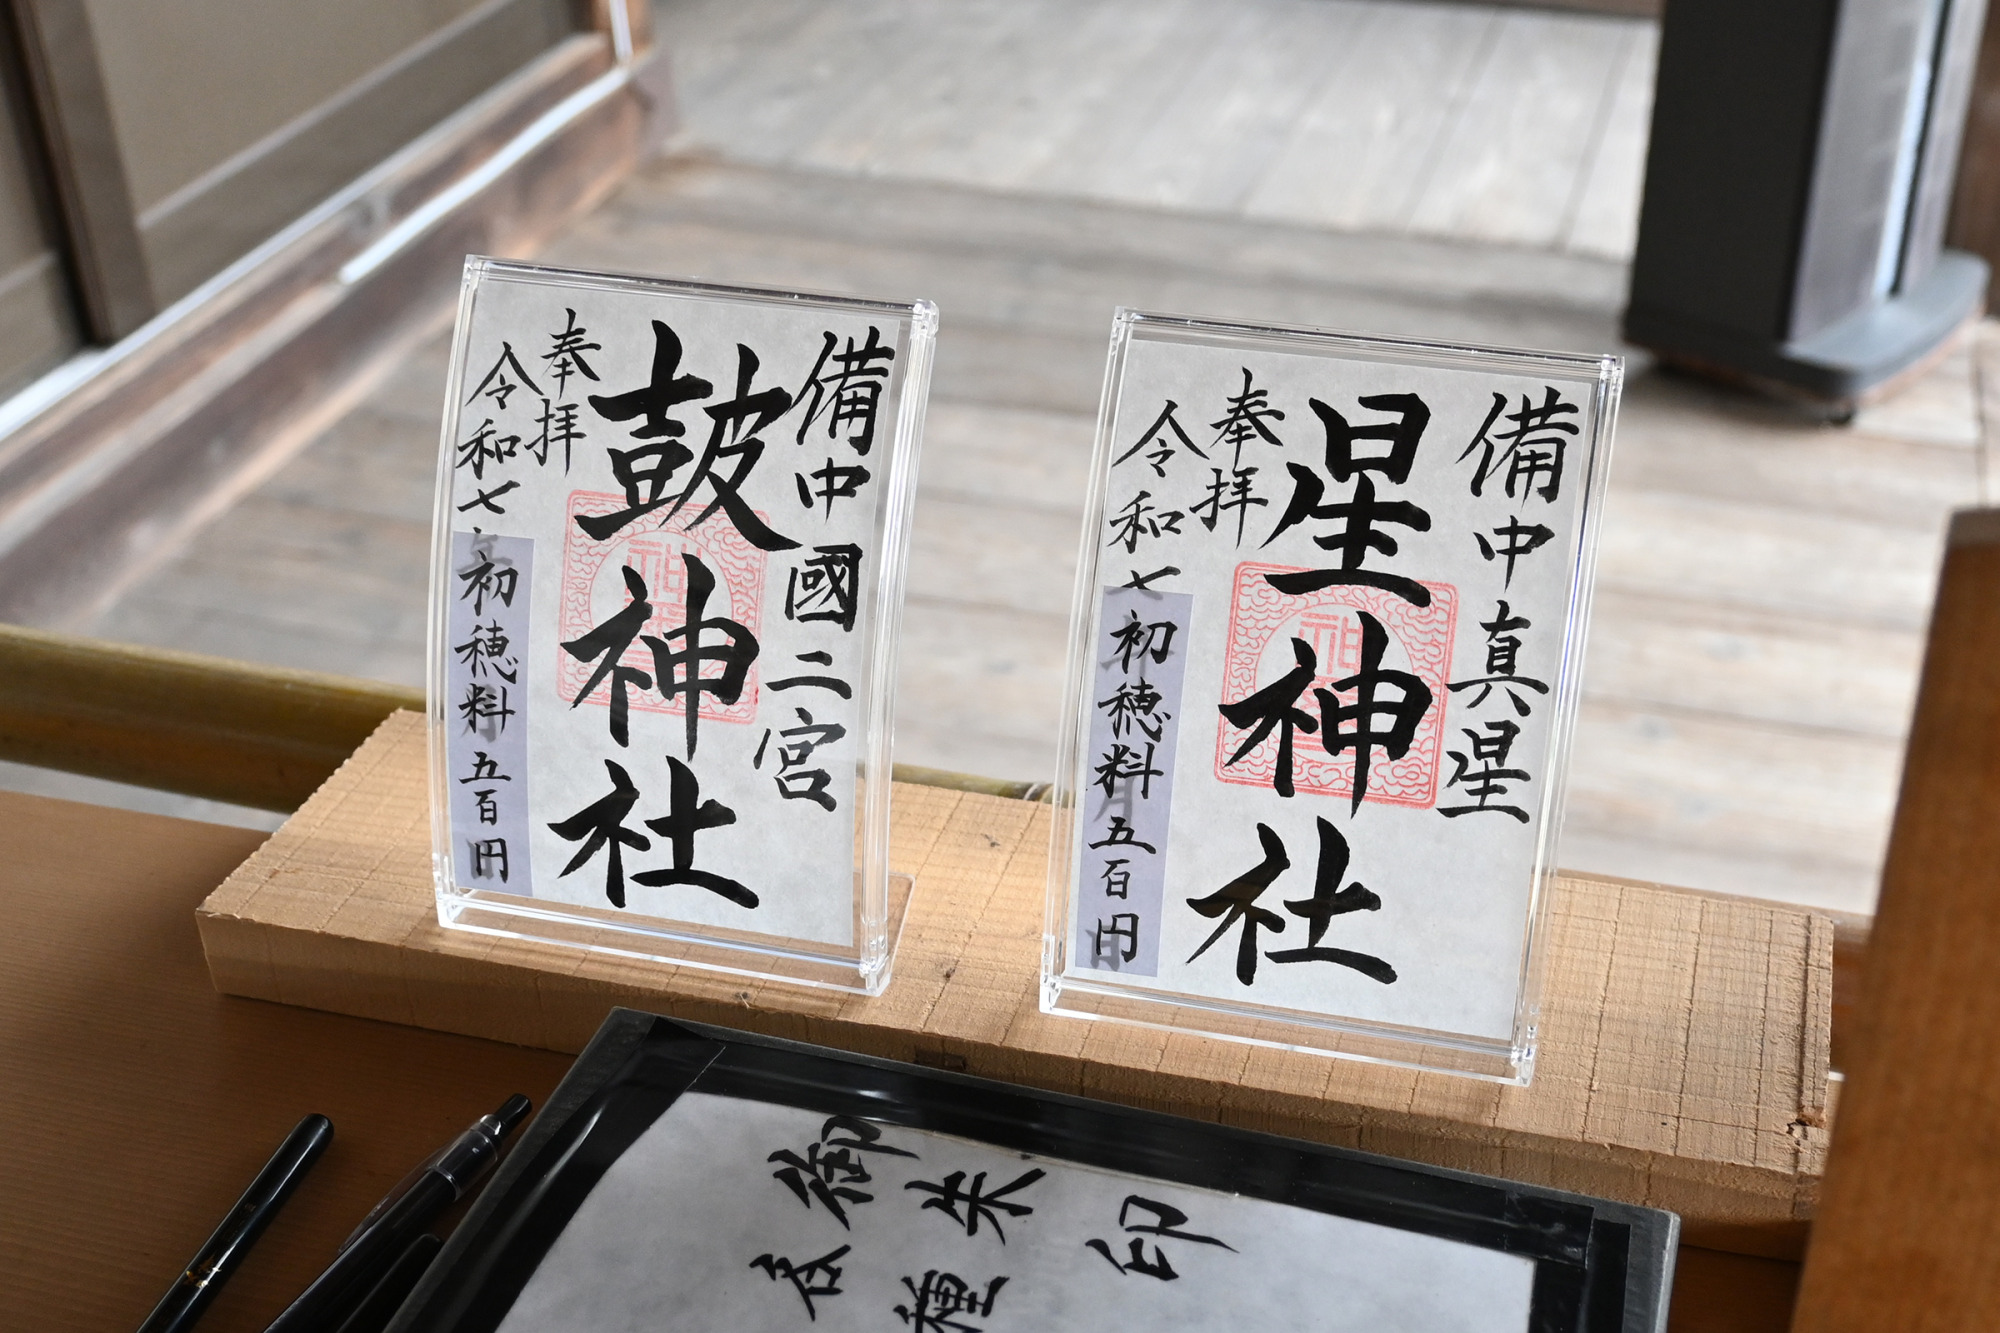 備中國二宮
鼓神社
奉拝
令和七年
初穂料 五百円
備中真星
星神社
奉拝
令和七
初穂料 五百円
御朱印
各種